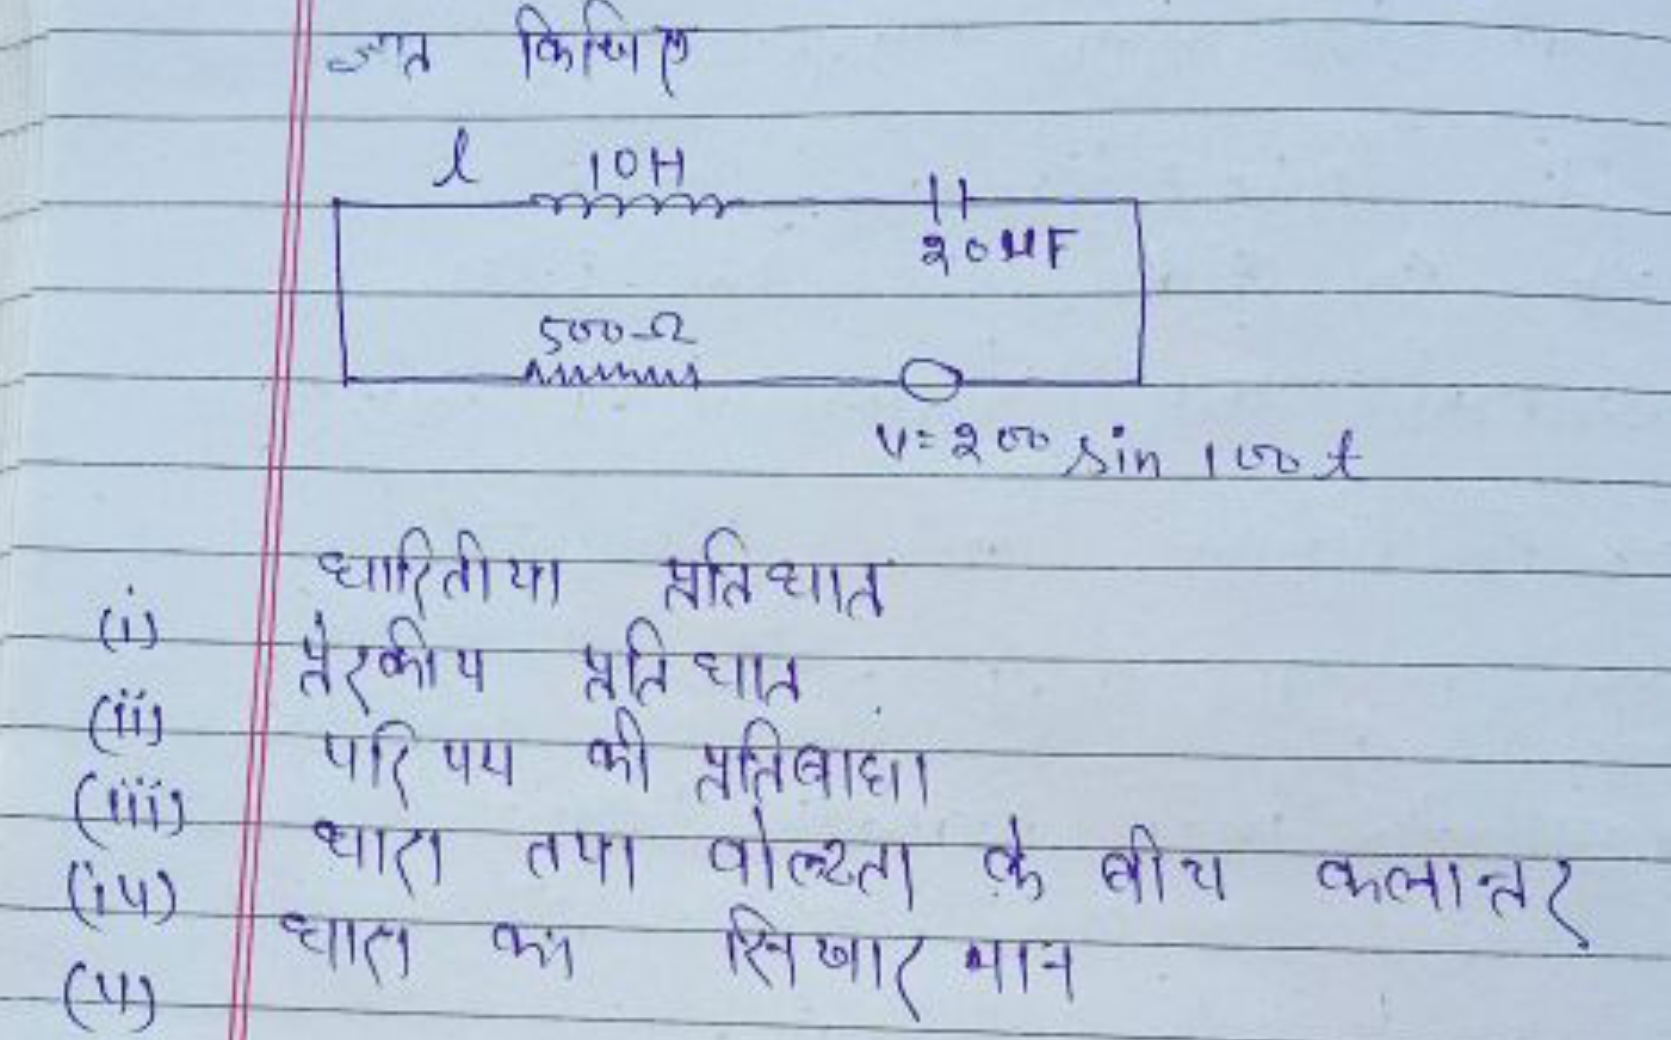 ज्ञात किजिए
l 10H
20μF
500Ω
V=200 sin 100t
(i) धारितीया प्रतिघात
(ii) प्रेरकीय प्रतिघात
(iii) परिपथ की प्रतिबाधा
(iv) धारा तथा वोल्टता के बीच कलान्तर
(v) धारा का सिखार मान